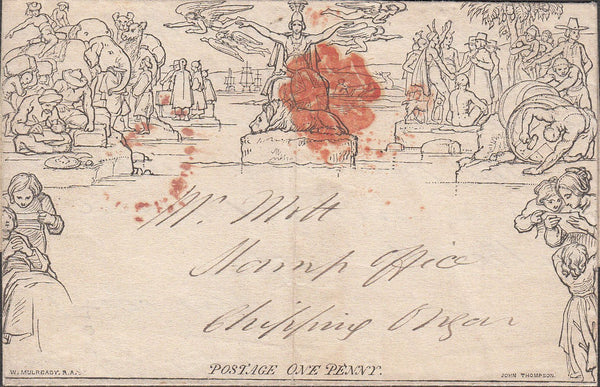 Mr. Mott
Stamp Office
Chipping Ongar
POSTAGE ONE PENNY.
W. MULREADY. R.A.
JOHN THOMPSON.